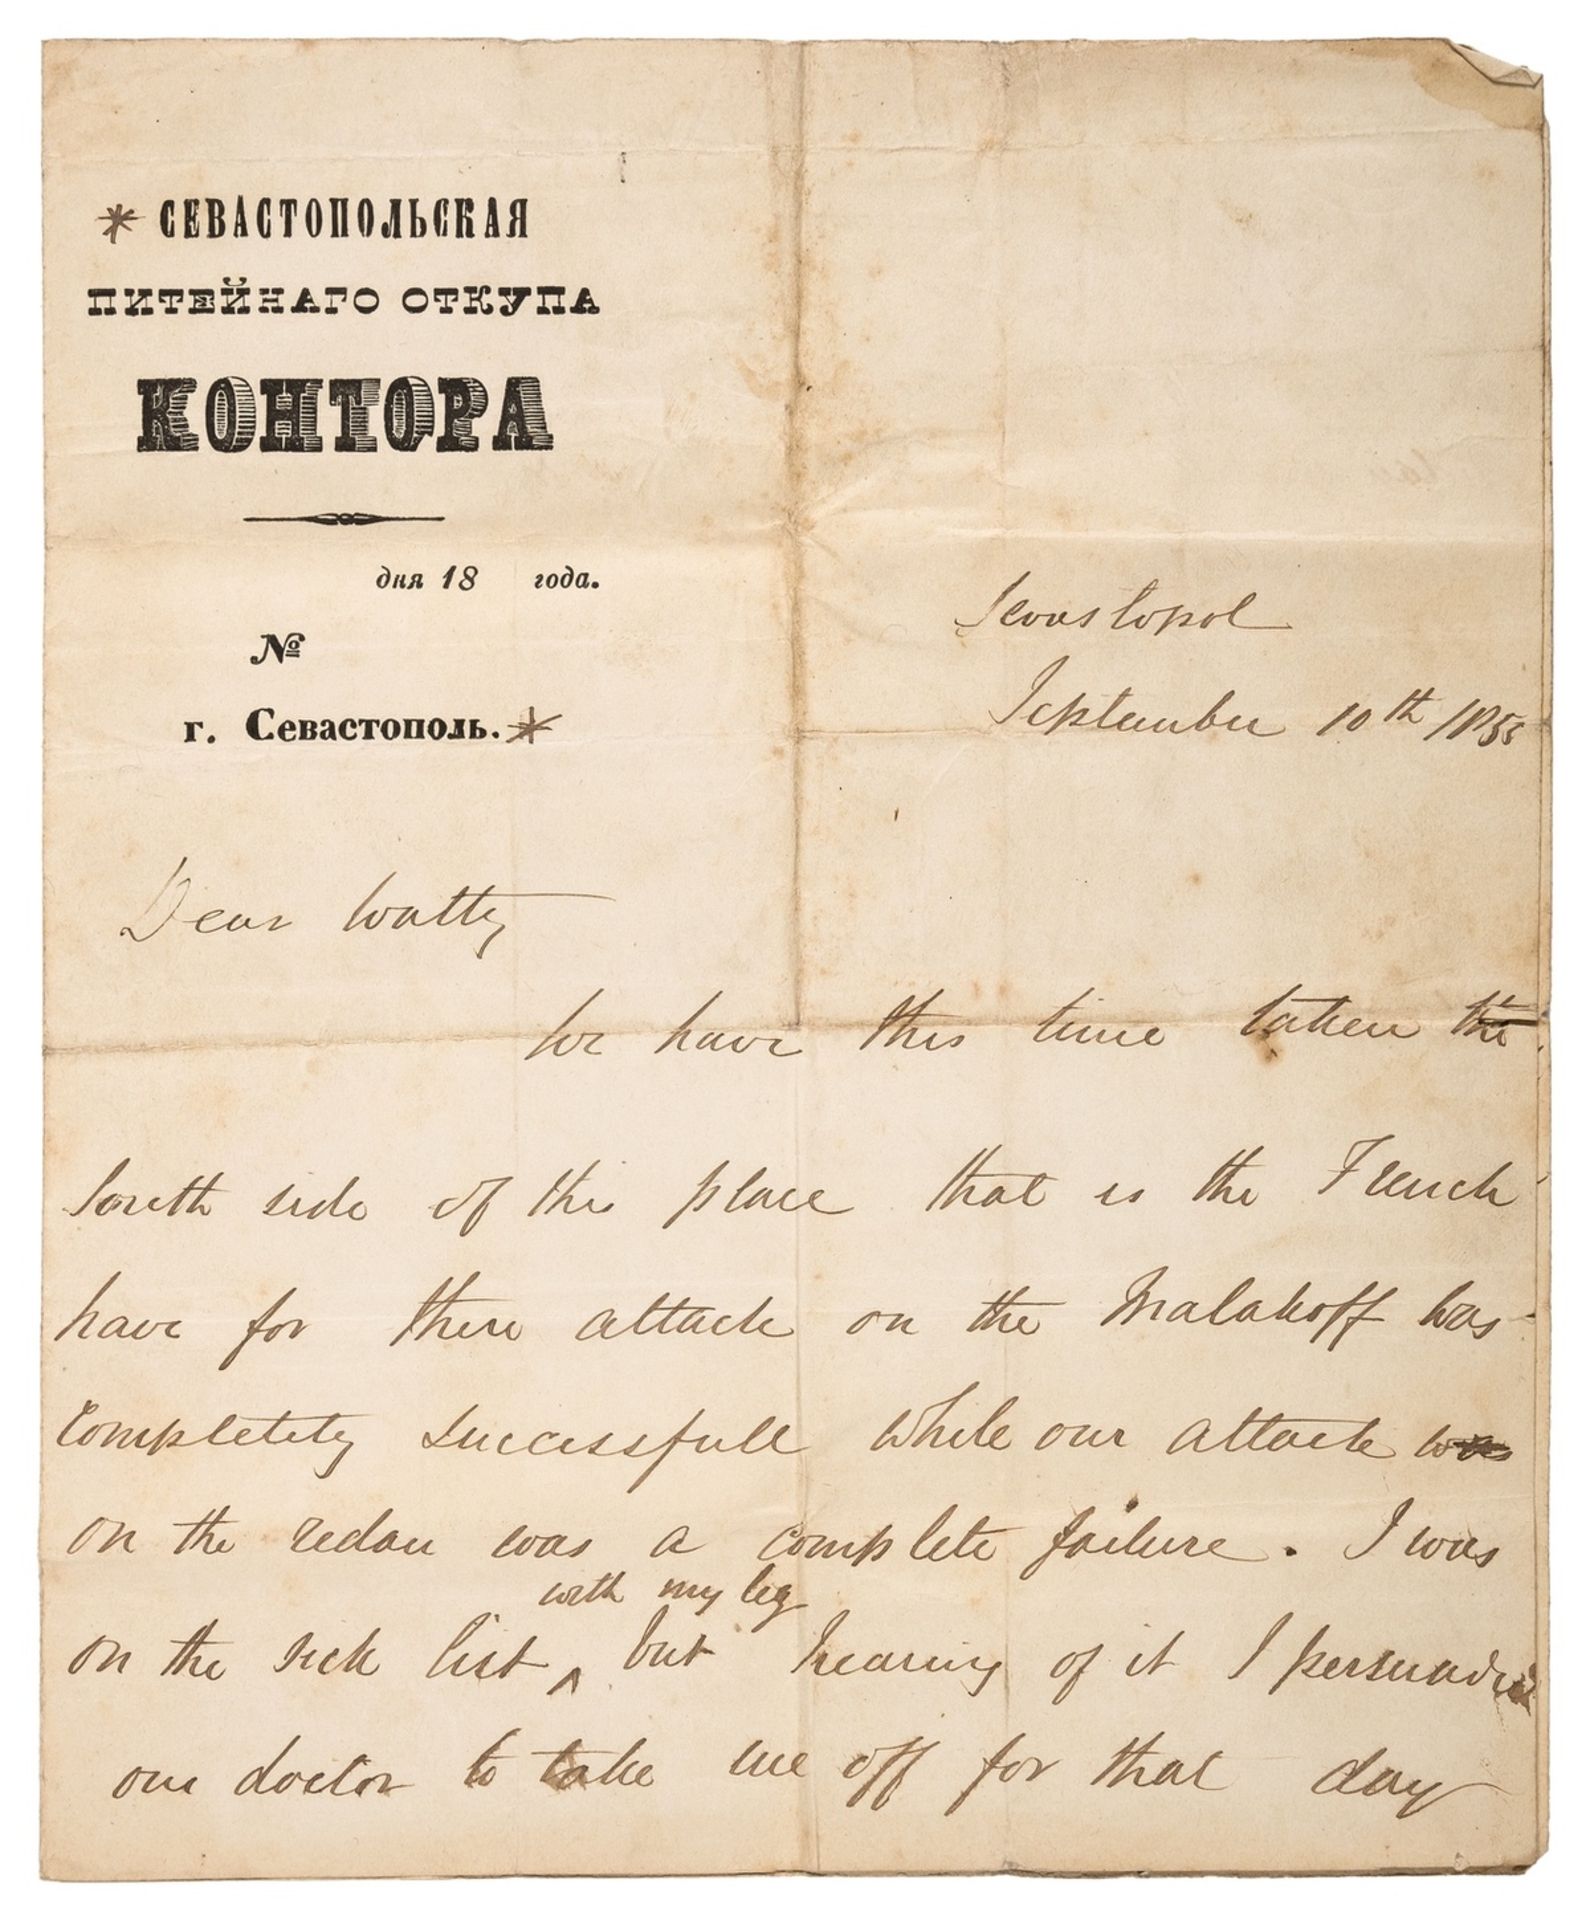 * СЕВАСТОПОЛЬСКАЯ
ПИТЕЙНАГО ОТКУПА
КОНТОРА
дня 18 года.
№
г. Севастополь. *
Sevastopol
September 10th 1855
Dear Watty
We have this time taken the
South side of this place that is the French
have for there attack on the Malakoff was
completely successfull while our attack was
on the redan was a complete failure. I was
with my leg
on the sick list ^ but hearing of it I persuaded
our doctor to take me off for that day